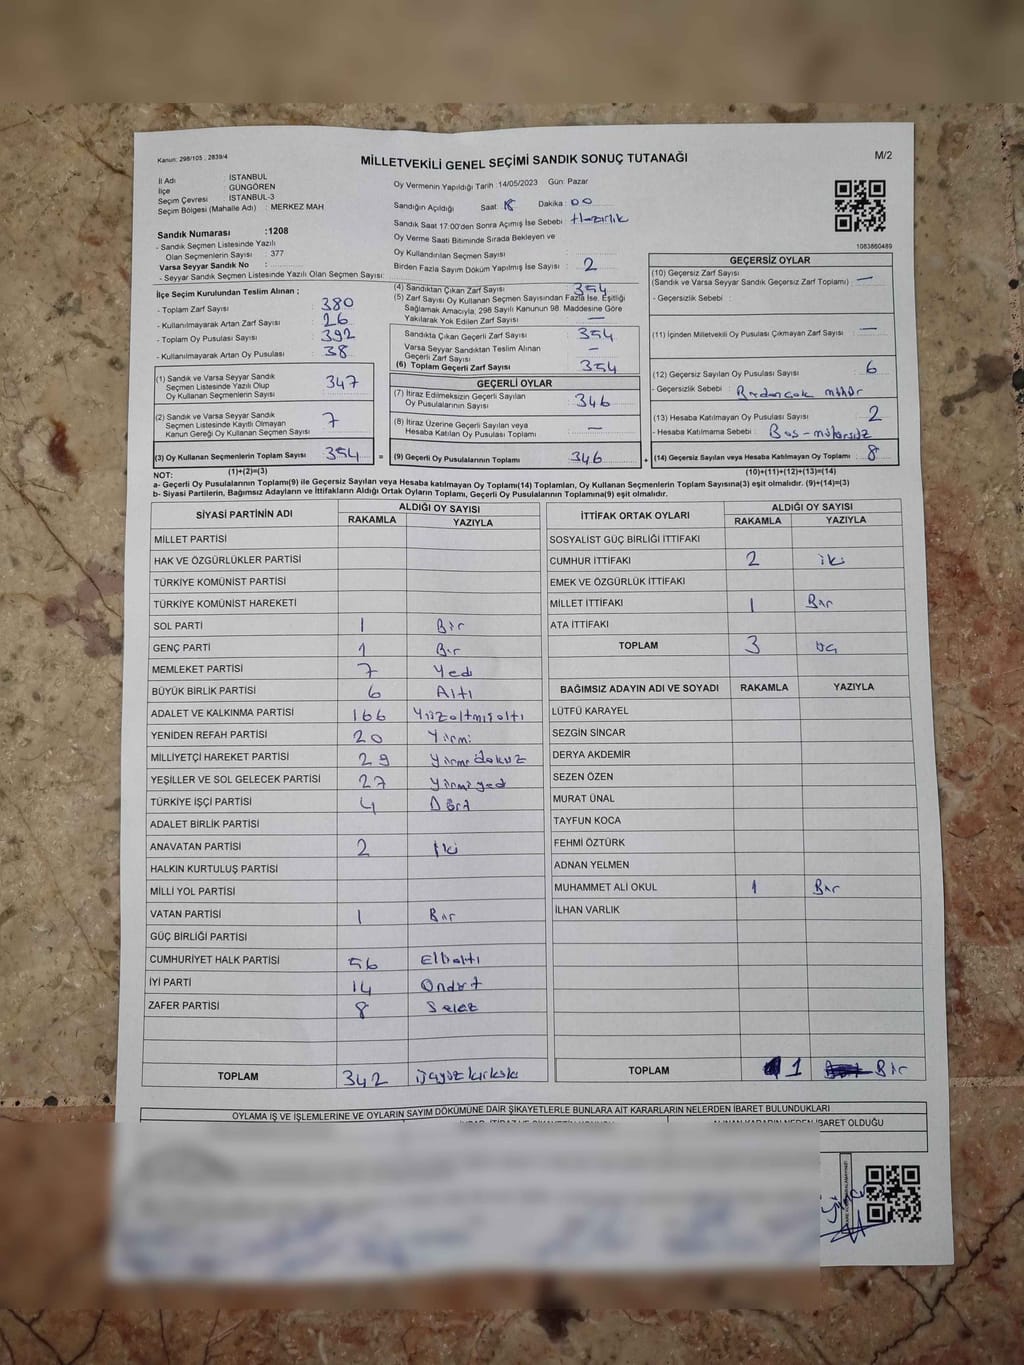 Kanun: 298/105 , 2839/4
MİLLETVEKİLİ GENEL SEÇİMİ SANDIK SONUÇ TUTANAĞI
M/2
İl Adı : İSTANBUL
İlçe : GÜNGÖREN
Seçim Çevresi : İSTANBUL-3
Seçim Bölgesi (Mahalle Adı) : MERKEZ MAH
Oy Vermenin Yapıldığı Tarih :14/05/2023 Gün: Pazar
Sandığın Açıldığı Saat: 18 Dakika: 00
Sandık Saat 17:00'den Sonra Açımış İse Sebebi: Hazırlık
Oy Verme Saati Bitiminde Sırada Bekleyen ve
Oy Kullandırılan Seçmen Sayısı :
Birden Fazla Sayım Döküm Yapılmış İse Sayısı : 2
1083860489
Sandık Numarası :1208
- Sandık Seçmen Listesinde Yazılı
Olan Seçmenlerin Sayısı : 377
Varsa Seyyar Sandık No :
- Seyyar Sandık Seçmen Listesinde Yazılı Olan Seçmen Sayısı:
İlçe Seçim Kurulundan Teslim Alınan ;
- Toplam Zarf Sayısı : 380
- Kullanılmayarak Artan Zarf Sayısı : 26
- Toplam Oy Pusulası Sayısı : 392
- Kullanılmayarak Artan Oy Pusulası : 38
(1) Sandık ve Varsa Seyyar Sandık
Seçmen Listesinde Yazılı Olup
Oy Kullanan Seçmenlerin Sayısı : 347
(2) Sandık ve Varsa Seyyar Sandık
Seçmen Listesinde Kayıtlı Olmayan
Kanun Gereği Oy Kullanan Seçmen Sayısı : 7
(3) Oy Kullanan Seçmenlerin Toplam Sayısı : 354 =
(1)+(2)=(3)
(4) Sandıktan Çıkan Zarf Sayısı : 354
(5) Zarf Sayısı Oy Kullanan Seçmen Sayısından Fazla İse, Eşitliği
Sağlamak Amacıyla, 298 Sayılı Kanunun 98. Maddesine Göre
Yakılarak Yok Edilen Zarf Sayısı : —
Sandıkta Çıkan Geçerli Zarf Sayısı : 354
Varsa Seyyar Sandıktan Teslim Alınan
Geçerli Zarf Sayısı : —
(6) Toplam Geçerli Zarf Sayısı : 354
GEÇERLİ OYLAR
(7) İtiraz Edilmeksizin Geçerli Sayılan
Oy Pusulalarının Sayısı : 346
(8) İtiraz Üzerine Geçerli Sayılan veya
Hesaba Katılan Oy Pusulası Toplamı : —
(9) Geçerli Oy Pusulalarının Toplamı : 346 +
GEÇERSİZ OYLAR
(10) Geçersiz Zarf Sayısı
(Sandık ve Varsa Seyyar Sandık Geçersiz Zarf Toplamı) : —
- Geçersizlik Sebebi :
(11) İçinden Milletvekili Oy Pusulası Çıkmayan Zarf Sayısı : —
(12) Geçersiz Sayılan Oy Pusulası Sayısı : 6
- Geçersizlik Sebebi : Birden çok mühür
(13) Hesaba Katılmayan Oy Pusulası Sayısı : 2
- Hesaba Katılmama Sebebi : Boş-mühürsüz
(14) Geçersiz Sayılan veya Hesaba Katılmayan Oy Toplamı : 8
(10)+(11)+(12)+(13)=(14)
NOT:
a- Geçerli Oy Pusulalarının Toplamı(9) ile Geçersiz Sayılan veya Hesaba Katılmayan Oy Toplamı(14) Toplamları, Oy Kullanan Seçmenlerin Toplam Sayısına(3) eşit olmalıdır. (9)+(14)=(3)
b- Siyasi Partilerin, Bağımsız Adayların ve İttifakların Aldığı Ortak Oyların Toplamı, Geçerli Oy Pusulalarının Toplamına(9) eşit olmalıdır.
SİYASİ PARTİNİN ADI ALDIĞI OY SAYISI
RAKAMLA YAZIYLA
MİLLET PARTİSİ
HAK VE ÖZGÜRLÜKLER PARTİSİ
TÜRKİYE KOMÜNİST PARTİSİ
TÜRKİYE KOMÜNİST HAREKETİ
SOL PARTİ 1 Bir
GENÇ PARTİ 1 Bir
MEMLEKET PARTİSİ 7 Yedi
BÜYÜK BİRLİK PARTİSİ 6 Altı
ADALET VE KALKINMA PARTİSİ 166 Yüzaltmışaltı
YENİDEN REFAH PARTİSİ 20 Yirmi
MİLLİYETÇİ HAREKET PARTİSİ 29 Yirmidokuz
YEŞİLLER VE SOL GELECEK PARTİSİ 27 Yirmiyedi
TÜRKİYE İŞÇİ PARTİSİ 4 Dört
ADALET BİRLİK PARTİSİ
ANAVATAN PARTİSİ 2 İki
HALKIN KURTULUŞ PARTİSİ
MİLLİ YOL PARTİSİ
VATAN PARTİSİ 1 Bir
GÜÇ BİRLİĞİ PARTİSİ
CUMHURİYET HALK PARTİSİ 56 Ellialtı
İYİ PARTİ 14 Ondört
ZAFER PARTİSİ 8 Sekiz
TOPLAM 342 Üçyüzkırkiki
İTTİFAK ORTAK OYLARI ALDIĞI OY SAYISI
RAKAMLA YAZIYLA
SOSYALİST GÜÇ BİRLİĞİ İTTİFAKI
CUMHUR İTTİFAKI 2 iki
EMEK VE ÖZGÜRLÜK İTTİFAKI
MİLLET İTTİFAKI 1 Bir
ATA İTTİFAKI
TOPLAM 3 Üç
BAĞIMSIZ ADAYIN ADI VE SOYADI RAKAMLA YAZIYLA
LÜTFÜ KARAYEL
SEZGİN SİNCAR
DERYA AKDEMİR
SEZEN ÖZEN
MURAT ÜNAL
TAYFUN KOCA
FEHMİ ÖZTÜRK
ADNAN YELMEN
MUHAMMET ALİ OKUL 1 Bir
İLHAN VARLIK
TOPLAM 1 Bir
OYLAMA İŞ VE İŞLEMLERİNE VE OYLARIN SAYIM DÖKÜMÜNE DAİR ŞİKAYETLERLE BUNLARA AİT KARARLARIN NELERDEN İBARET BULUNDUKLARI
ALINAN KARARIN NEDEN İBARET OLDUĞU